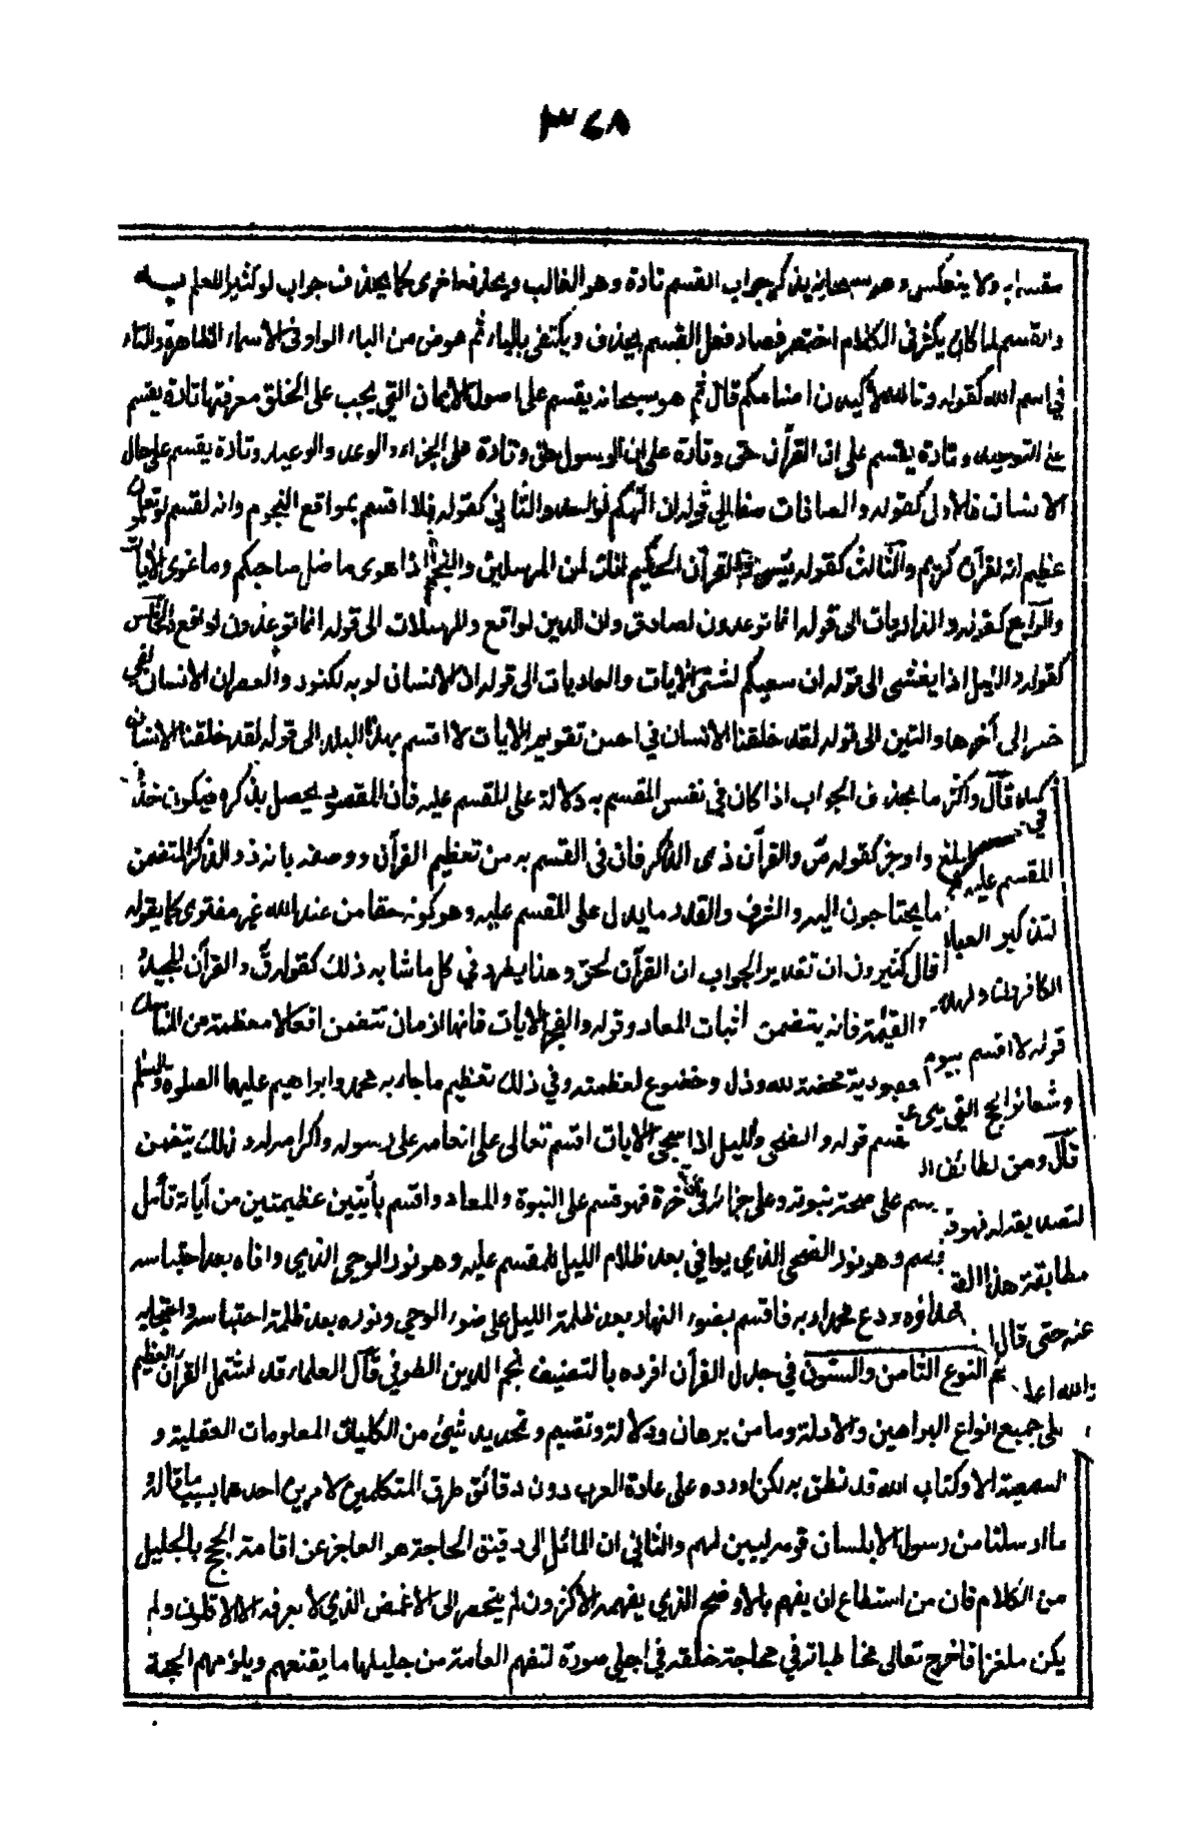 ٣٤٨
مقسما به ولا ينعكس وهو سبحانه يذكر جواب القسم تارة وهو الغالب ويحذفه اخرى كما يحذف جواب لو كثيرا للعلم به
والقسم لما كان يكثر في الكلام اختصر فصار فعل القسم يحذف ويكتفى بالباء ثم عوض من الباء الواو في الاسماء الظاهرة والتاء
في اسم الله كقوله وتالله لاكيدن اصنامكم قال ثم هو سبحانه يقسم على اصول الايمان التي يجب على الخلق معرفتها تارة يقسم
على التوحيد وتارة يقسم على ان القرآن حق وتارة على ان الرسول حق وتارة على الجزاء والوعد والوعيد وتارة يقسم على حال
الانسان فالاول كقوله والصافات صفا الى قوله ان الهكم لواحد والثاني كقوله فلا اقسم بمواقع النجوم وانه لقسم لو تعلمون
عظيم انه لقرآن كريم والثالث كقوله يس والقرآن الحكيم انك لمن المرسلين والنجم اذا هوى ما ضل صاحبكم وما غوى الايات
والرابع كقوله والذاريات الى قوله انما توعدون لصادق وان الدين لواقع والمرسلات الى قوله انما توعدون لواقع والخامس
كقوله والليل اذا يغشى الى قوله ان سعيكم لشتى الايات والعاديات الى قوله ان الانسان لربه لكنود والعصر ان الانسان لفي
خسر الى آخرها والتين الى قوله لقد خلقنا الانسان في احسن تقويم الايات لا اقسم بهذا البلد الى قوله لقد خلقنا الانسان
في كبد قال واكثر ما يحذف الجواب اذا كان في نفس المقسم به دلالة على المقسم عليه فان المقصود يحصل بذكره فيكون حذف
المقسم عليه ابلغ واوجز كقوله ص والقرآن ذى الذكر فان في القسم به من تعظيم القرآن ووصفه بانه ذو الذكر المتضمن
لتذكير العباد ما يحتاجون اليه والشرف والقدر ما يدل على المقسم عليه وهو كونه حقا من عند الله غير مفترى كما يقوله
الكافرون ولهذا قال كثيرون ان تقدير الجواب ان القرآن لحق وهذا يطرد في كل ما شابه ذلك كقوله ق والقرآن المجيد
قوله لا اقسم بيوم القيمة فانه يتضمن اثبات المعاد وقوله والفجر الايات فانها ازمان تتضمن افعالا معظمة من المناسك
وشعائر الحج التي هي عبودية محضة لله وذل وخضوع لعظمته وفي ذلك تعظيم ما جاء به محمد وابراهيم عليهما الصلوة والسلام
قال ومن لطائف القسم قوله والضحى والليل اذا سجى الايات اقسم تعالى على انعامه على رسوله واكرامه له وذلك يتضمن
لتصديقه له فهو قسم على صحة نبوته وعلى جزائه في الآخرة فهو قسم على النبوة والمعاد واقسم بآيتين عظيمتين من آياته تأمل
مطابقة هذا القسم وهو نور الضحى الذي يوافي بعد ظلام الليل للمقسم عليه وهو نور الوحي الذي وافاه بعد احتباسه
عنه حتى قال اعداؤه ودع محمدا ربه فاقسم بضوء النهار بعد ظلمة الليل على ضوء الوحي ونوره بعد ظلمة احتباسه واحتجابه
والله اعلم النوع الثامن والستون في جدل القرآن افرده بالتصنيف نجم الدين الطوفي قال العلماء قد اشتمل القرآن العظيم
على جميع انواع البراهين والادلة وما من برهان ودلالة وتقسيم وتحديد شيئ من الكليات المعلومات العقلية و
السمعية الا وكتاب الله قد نطق به لكن اورده على عادة العرب دون دقائق طرق المتكلمين لامرين احدهما بسبب ما قاله
ما ارسلنا من رسول الا بلسان قومه ليبين لهم والثاني ان المائل الى دقيق الحاجة هو العاجز عن اقامة الحج بالجليل
من الكلام فان من استطاع ان يفهم بالاوضح الذي يفهمه الاكثرون لم ينحصر الى الاغمض الذي لا يعرفه الا الاقلون ولم
يكن ملغزا فاخرج تعالى مخاطباته في محاجة خلقه في اجلى صورة لتفهم العامة من جليلها ما يقنعهم ويلزمهم الحجة